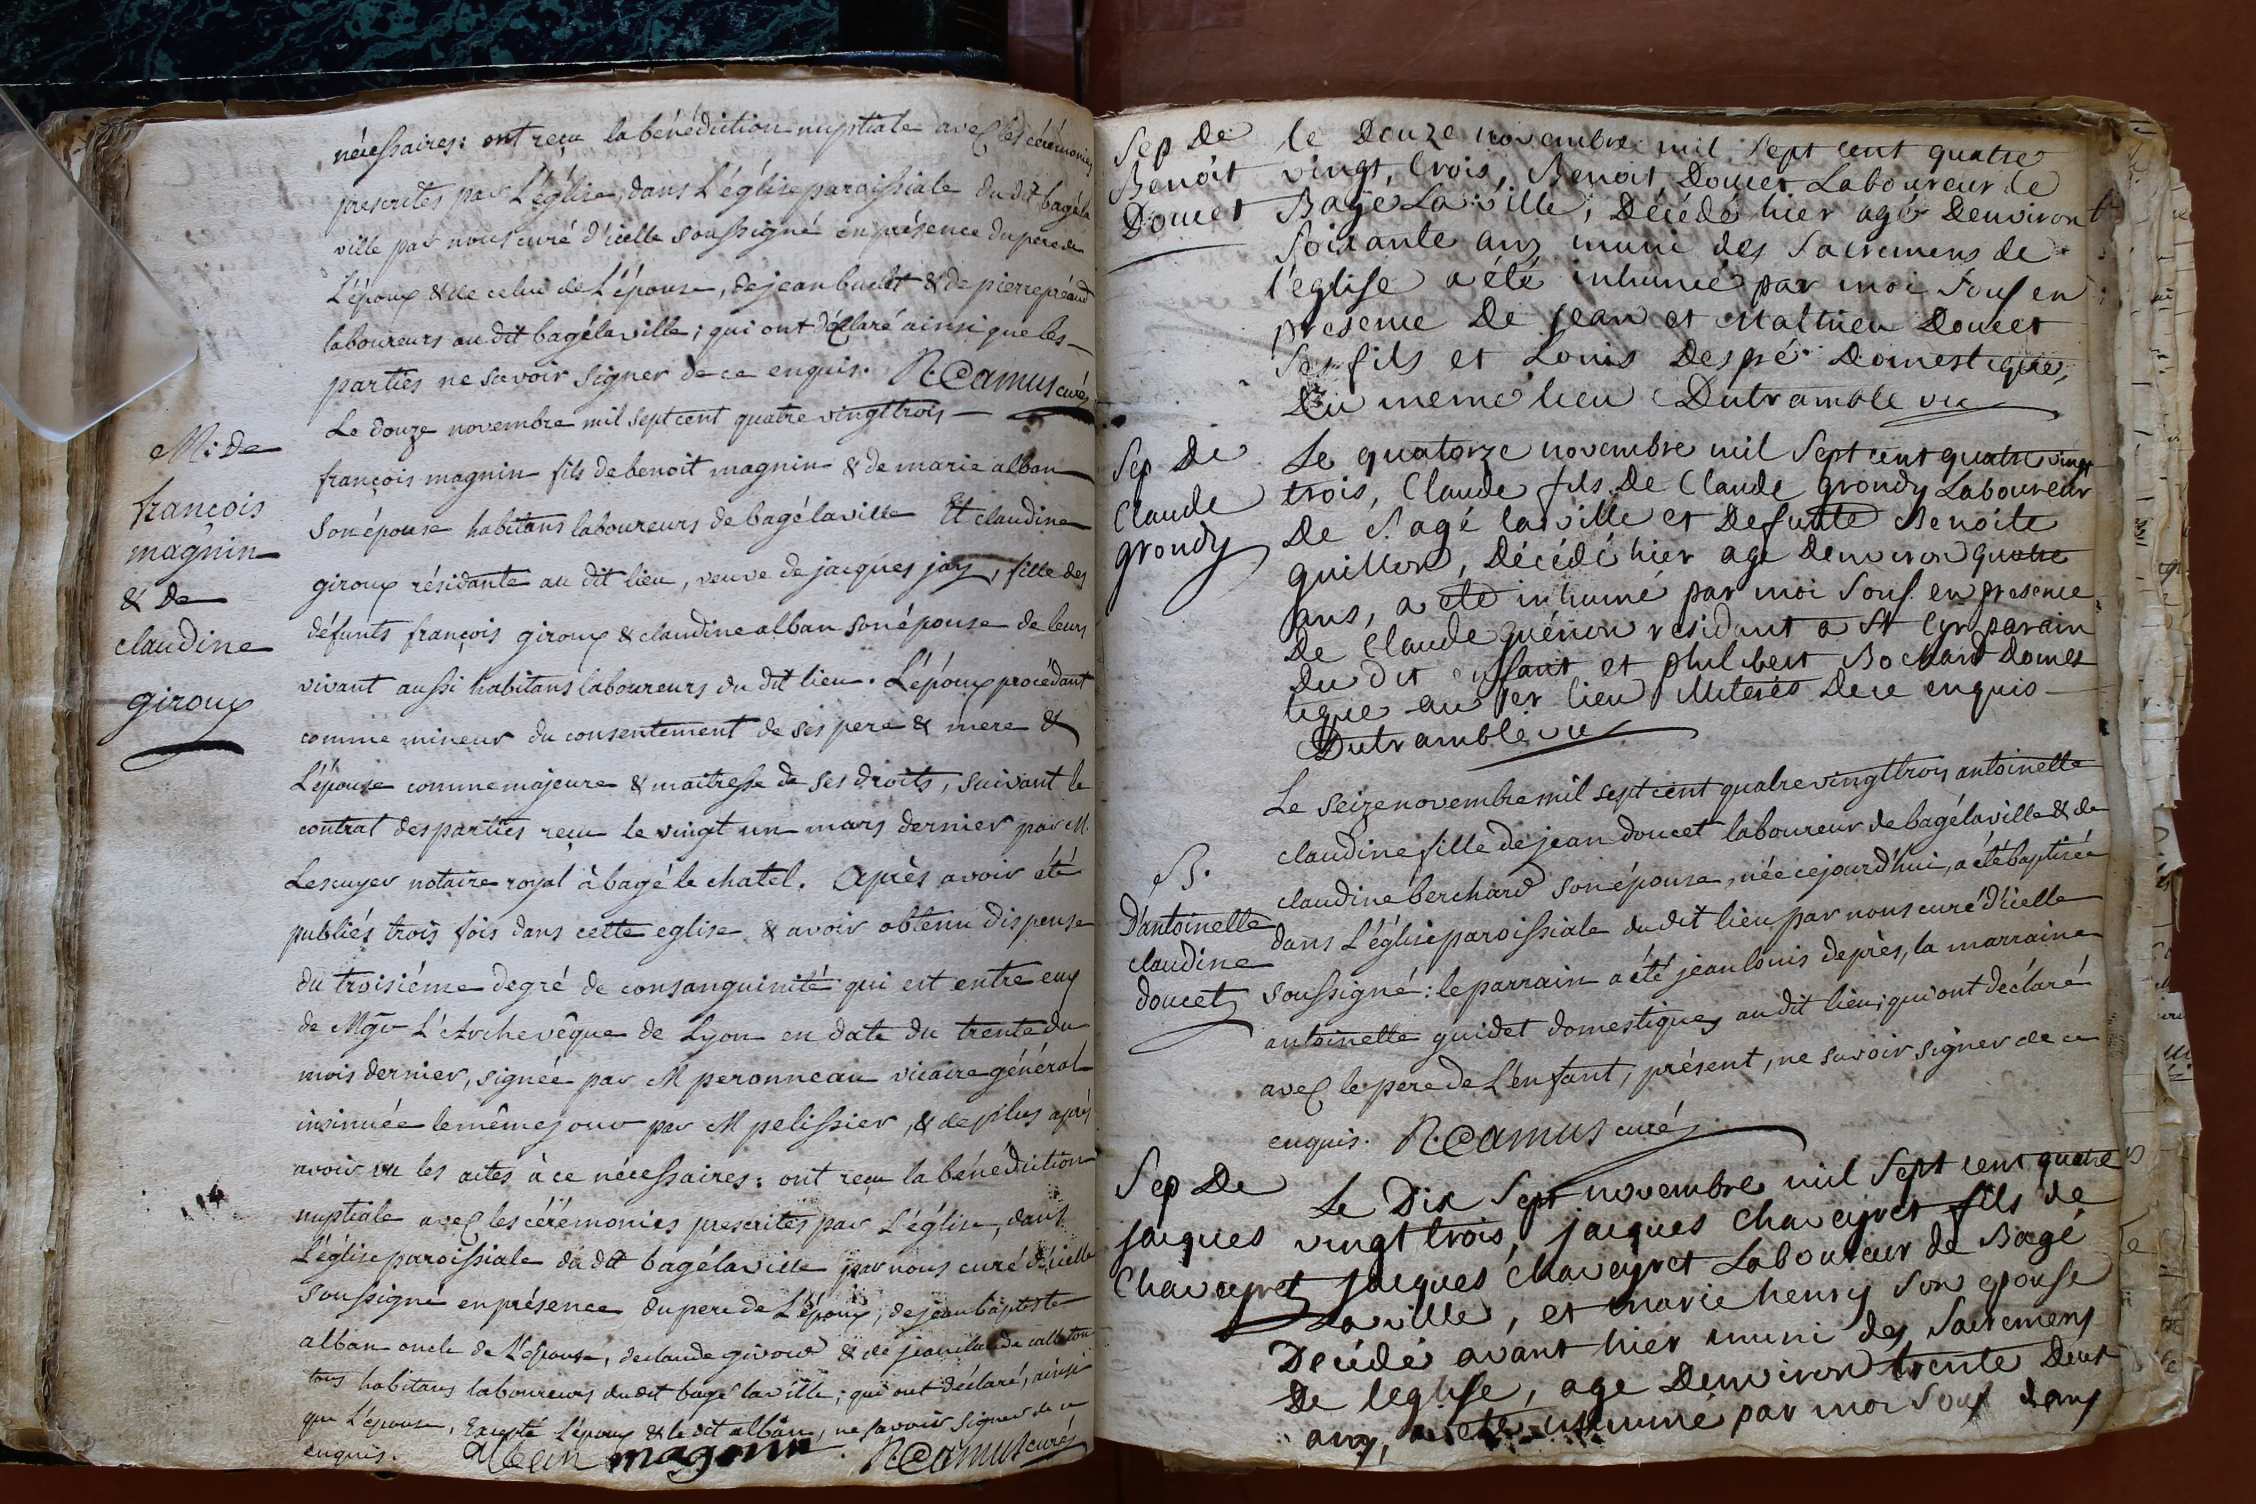 nécessaires: ont reçu la bénédiction nuptiale avec les cérémonies
prescrites par L'église, dans L'église paroissiale du dit bagéla
ville par nous curé d'icelle soussigné en présence du pere de
L'époux & de celui de L'épouse, de jean buclet & de pierre préaud
laboureurs au dit bagélaville; qui ont déclaré ainsi que les
parties ne savoir signer de ce enquis. R. Camus curé
M: de
françois
magnin
& de
claudine
giroux
Le douze novembre mil sept cent quatre vingt trois
françois magnin fils de benoit magnin & de marie alban
son épouse habitans laboureurs de bagélaville Et claudine
giroux résidante au dit lieu, veuve de jacques jay, fille des
défunts françois giroux & claudine alban son épouse de leurs
vivant aussi habitans laboureurs du dit lieu. L'époux procédant
comme mineur du consentement de ses pere & mere &
L'épouse comme majeure & maitresse de ses droits, suivant le
contrat des parties reçu le vingt un mars dernier par M.
Lescuyer notaire royal à bagé le chatel. Après avoir été
publiés trois fois dans cette eglise & avoir obtenu dispense
du troisiéme degré de consanguinité qui est entre eux
de Mgr L'Archevêque de Lyon en date du trente du
mois dernier, signée par M peronneau vicaire général
insinuée le même jour par M pelissier, & de plus après
avoir vu les actes à ce nécessaires: ont reçu la bénédiction
nuptiale avec les cérémonies prescrites par L'église, dans
L'église paroissiale du dit bagélaville par nous curé d'icelle
soussigné en présence du pere de L'époux, de jean baptiste
alban oncle de L'épouse, de claude giroud & de jean claude
tous habitans laboureurs du dit bagélaville; qui ont déclaré, ainsi
que L'épouse, Excepté L'époux & le dit alban, ne savoir signer de ce
enquis. alban magnin R. Camus curé
Sep de
Benoit
Doucet
le Douze novembre mil sept cent quatre
vingt, trois, Benoit Doucet Laboureur de
Bagé La ville, Décédé hier agé Denviront
soixante ans muni des Sacremens de
l'eglise a été inhumé par moi Sous en
presence De jean et Mathieu Doucet
Ses fils et Louis Despré Domestique,
Du meme lieu Dutramble vic
Sep De
Claude
grondy
Le quatorze novembre mil Sept cent quatre vingt
trois, Claude fils De Claude grondy Laboureur
De Bagé la ville et Defunte Benoite
guillon, Décédé hier age Denviron quatre
ans, a ete inhumé par moi Sous. en presence
De Claude guénon residant a St Cyr parain
Du Dit enfant et philibert Bochard Domes
tique au 1er lieu illiterés Dece enquis
Dutramble vic
B.
D'antoinette
claudine
doucet
Le seize novembre mil sept cent quatre vingt trois antoinette
claudine fille de jean doucet laboureur de bagélaville & de
claudine berchard son épouse, née cejourd'hui, a été baptisée
dans L'église paroissiale du dit lieu par nous curé d'icelle
soussigné: le parrain a été jean louis deprès, la marraine
antoinette guidet domestiques au dit lieu; qui ont déclaré
avec le pere de L'enfant, présent, ne savoir signer de ce
enquis. R. Camus curé
Sep De
jacques
Chaveyret
Le Dix Sept novembre mil Sept cent quatre
vingt trois, jacques Chaveyret fils de
jacques Chaveyret Laboureur de Bagé
La ville, et marie henry Son epouse
Décédé avant hier muni des Sacremens
De leglise, age Denviron trente Deux
ans, a ete inhumé par moi Sous dans